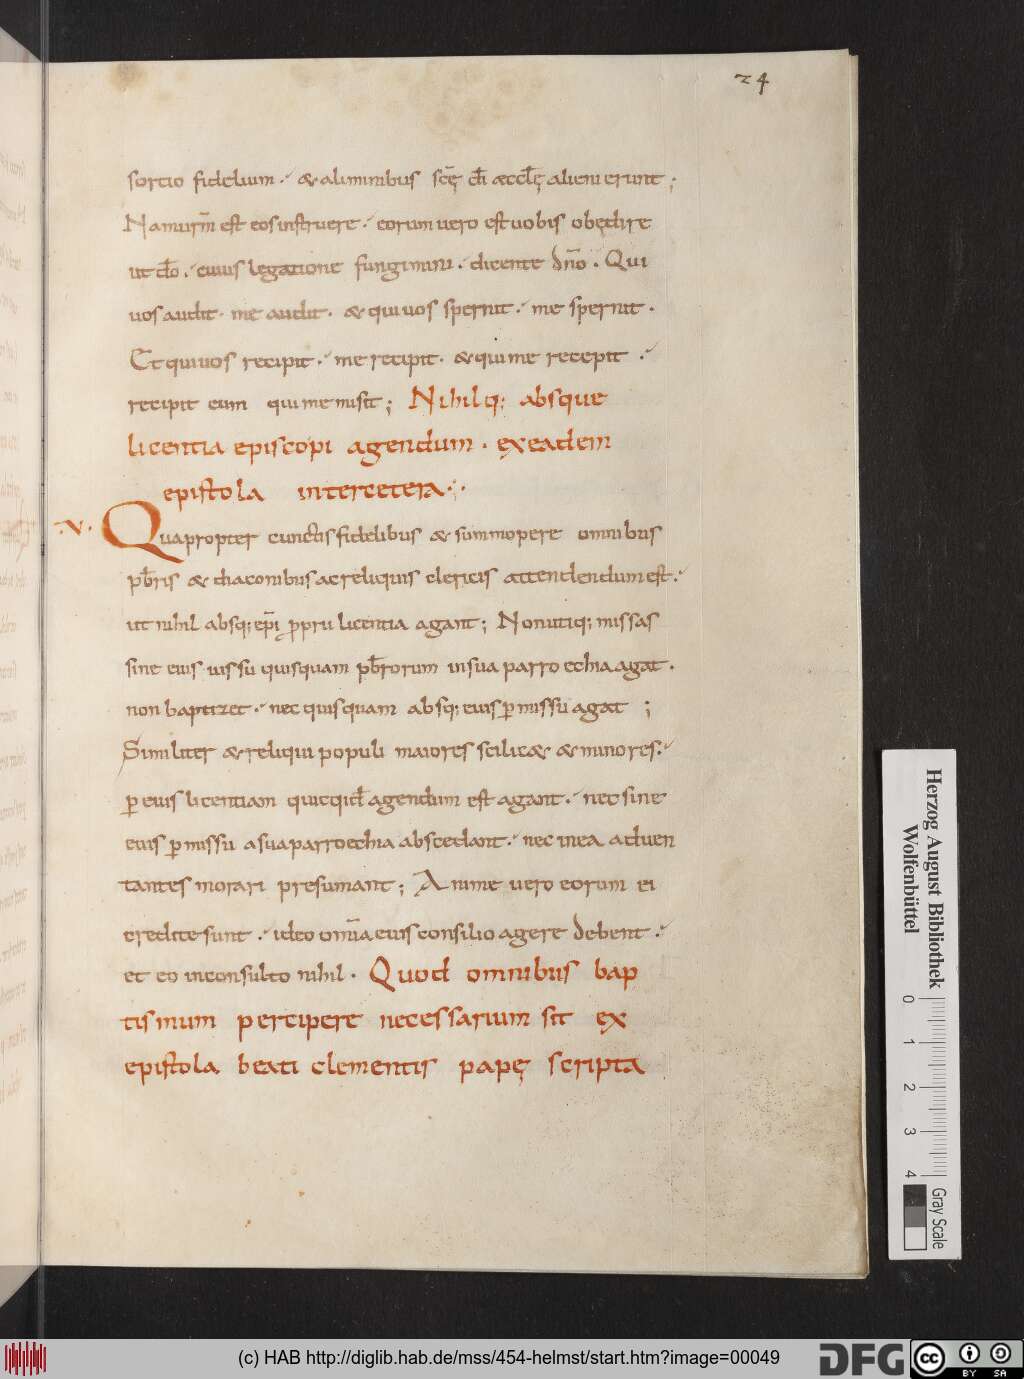 24
sortio fidelium. & aliminibus scę di æcclę alieni erunt;
Nam urm̄ est eos instruere. eorum uero est uobis obędire
ut do. cuius legatione fungimini. dicente dno. Qui
uos audit. me audit. & qui uos spernit. me spernit.
Et qui uos recipit. me recipit. & qui me recepit.
recipit eum qui me misit; Nihilq; absque
licentia episcopi agendum. ex eadem
epistola inter cetera.
.V. Quapropter cunctis fidelibus & summopere omnibus
pbris & diaconibus ac reliquis clericis attendendum est.
ut nihil absq; epi ppru licentia agant; Non utiq; missas
sine eius uissu quisquam pbrorum in sua parroechia agat.
non baptizet. nec quisquam absq; eius pmissu agat;
Similiter & reliqui populi maiores scilic& & minores.
p eius licentiam quicqid agendum est agant. nec sine
eius pmissu a sua parroechia abscedant. nec in ea aduen
tantes morari presumant; Anime uero eorum ei
credite sunt. ideo omīa eius consilio agere debent.
et eo inconsulto nihil. Quod omnibus bap
tismum percipere necessarium sit ex
epistola beati clementis papę scripta
Herzog August Bibliothek
Wolfenbüttel
0 1 2 3 4
Gray Scale
(c) HAB http://diglib.hab.de/mss/454-helmst/start.htm?image=00049
DFG
cc BY SA